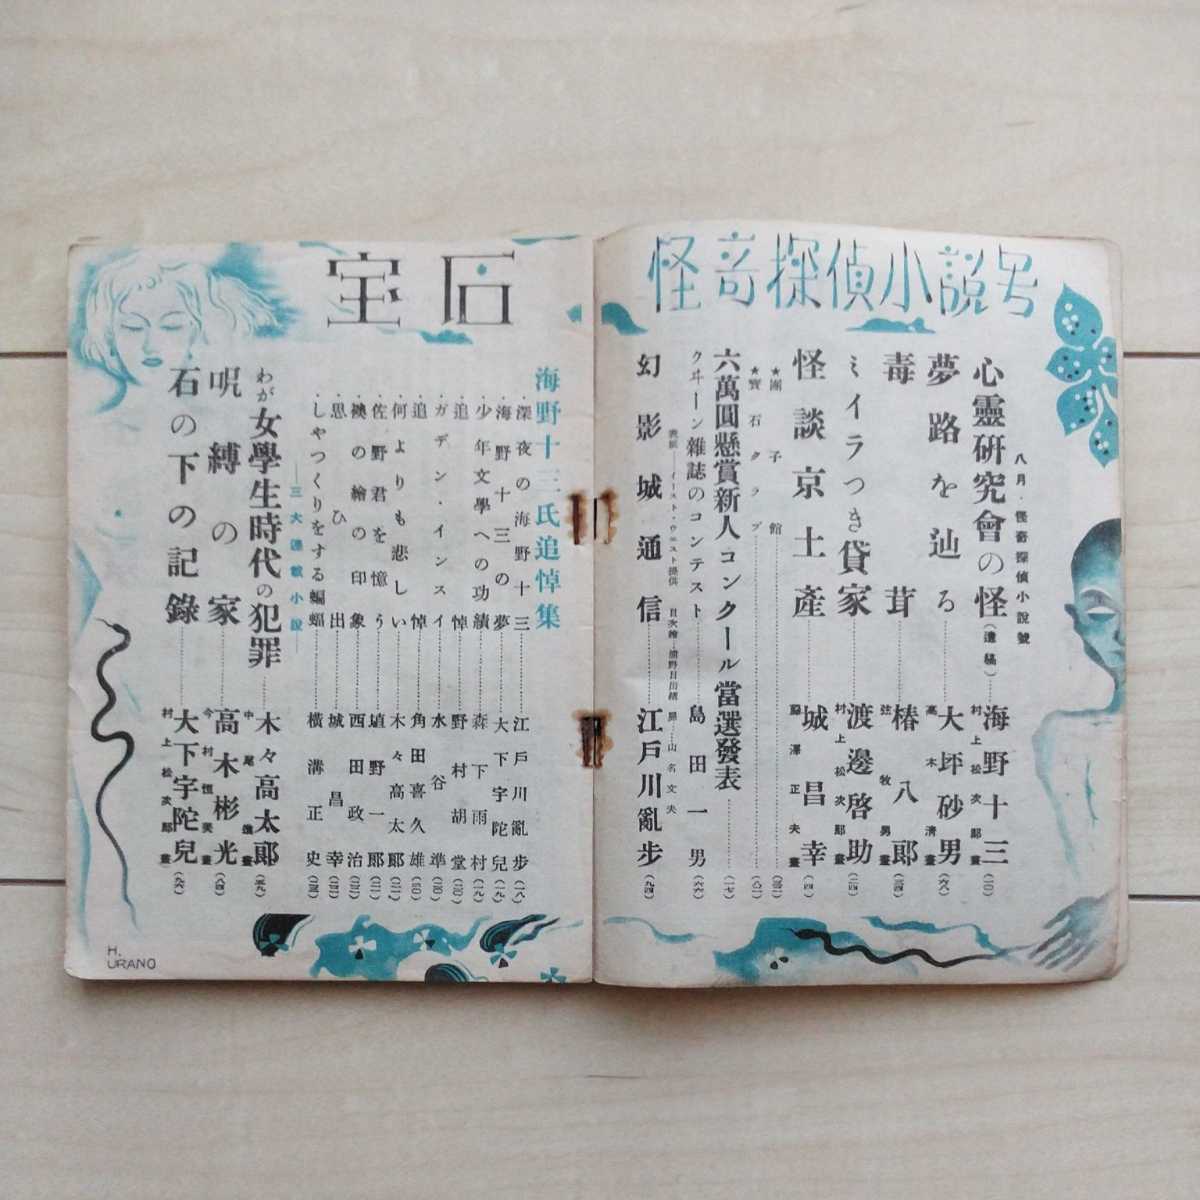 怪奇探偵小説号
八月・怪奇探偵小說號
心靈研究會の怪(遺稿)……海野十三(一〇)
村上松次郞畫
夢路を辿る……大坪砂男(六八)
高木淸畫
毒茸……椿八郞(三四)
弦牧男畫
ミイラつき貸家……渡邊啓助(二四)
村上松次郞畫
怪談京土產……城昌幸(四)
藤澤正夫畫
★團子館
★寶石クラブ
六萬圓懸賞新人コンクール當選發表……(一七)
クヰーン雜誌のコンテスト……島田一男(六六)
表紙――イースト・ウエスト提供 目次繪…熊野日出緖 扉…山名文夫
幻影城通信……江戶川亂步(九四)
宝石
海野十三氏追悼集
・深夜の海野十三……江戶川亂步(一八)
・海野十三の夢……大下宇陀兒(一九)
・少年文學への功績……森下雨村(一九)
・追悼……野村胡堂(二〇)
・ガデン・インスイ……水谷準(二〇)
・追悼……角田喜久雄(二〇)
・何よりも悲しい……木々高太郞(二一)
・佐野君を憶う……埴野一郞(二一)
・襖の繪の印象……西田政治
・思ひ出……城昌幸
・しやつくりをする蝙蝠……橫溝正史
――三大連載小說――
わが女學生時代の犯罪……木々高太郞(五九)
呪縛の家……高木彬光(八四)
石の下の記錄……大下宇陀兒(七六)
村上松次郞畫
H.
URANO